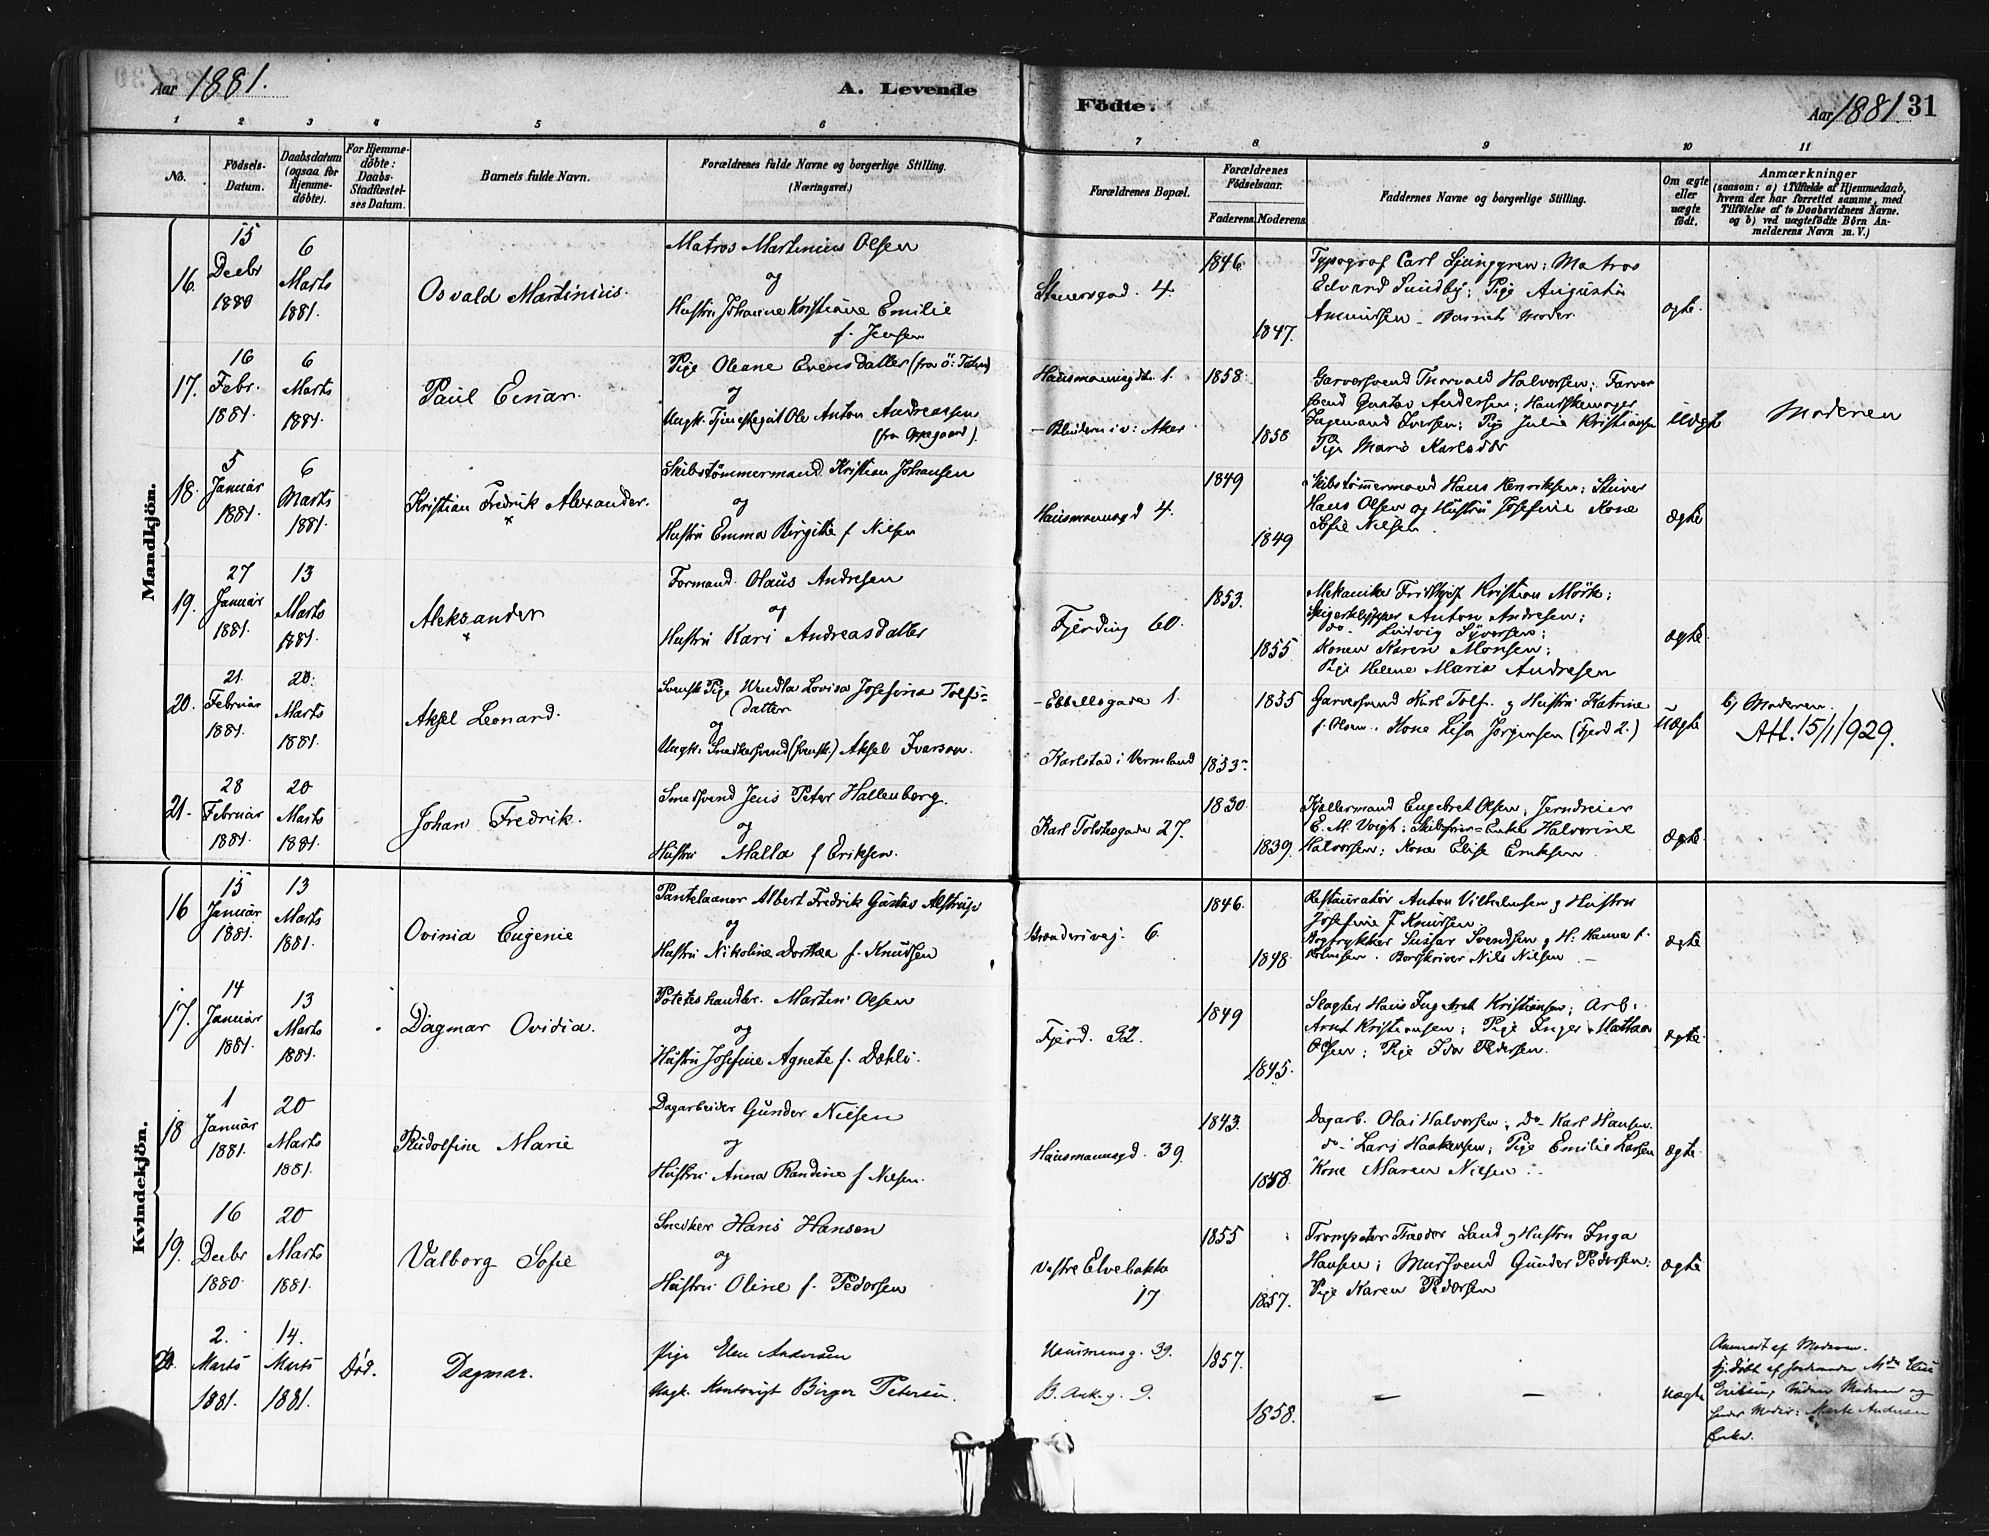 Aar 1881.
A. Levende
Födte.
Aar 1881. 31
1 2 3 4 5 6 7 8 9 10 11
No.
Födsels-Datum.
Daabsdatum (ogsaa for Hjemme-döbte).
For Hjemme-döbte: Daabs-Stadfæstel-ses Datum.
Barnets fulde Navn.
Forældrenes fulde Navne og borgerlige Stilling.
(Næringsvei.)
Forældrenes Bopæl.
Forældrenes Födselsaar.
Faderens. Moderens.
Faddernes Navne og borgerlige Stilling.
Om ægte eller uægte födt.
Anmærkninger
(saasom: a) i Tilfælde af Hjemmedaab,
hvem der har forrettet samme, med
Tilföielse af to Daabsvidners Navne.
og b) ved uægtefödte Börn An-
melderens Navn m. V.)
Mandkjön.
16. 15 Decbr 1880
6 Marts 1881.
Osvald Martinius.
Matros Martinius Olsen
og
Hustru Johanne Kristiane Emilie
f. Jensen
4.
1846.
1847.
Typograf Carl Ljunggren; Matros
Edvard Sundby; Pige Augusta
Amundsen Barnets Moder
ægte.
17. 16 Febr. 1881.
6 Marts 1881.
Paul Einar.
Pige Oleane Evensdatter
og
Ungk. Ole Anton Andreassen
(fra Oppegaard).
Hausmannsgd. 1.
Blindern i v: Aker
1858.
1858
Garversvend Thorvald Halvorsen; Farver
svend Gustav Andersen; Handskemager
Ingemand Iversen; Pige Julie Kristiansen
Pige Marie Karlsdtr
Uægte
Moderen
18. 5 Januar 1881.
6 Marts 1881.
Kristian Fredrik Alexander.
Skibstömmermand Kristian Johansen
og
Hustru Emma Birgitte f Nilsen
Hausmannsgd 4.
1849
1849
Skibstömmermand Hans Henriksen; Stuver
Hans Olsen og Hustru Josefine Kone
Sofie Nielsen.
Ægte
19. 27 Januar 1881.
13 Marts 1881.
Aleksander
Formand. Olaus Andresen
og
Hustru Kari Andreasdatter
Fjerding 60.
1853.
1855
Kristian Mörk;
Anton Andresen;
do. Ludvig Syversen;
Konen Karen Monsen;
Pige Helene Maria Andresen
ægte.
20. 21. Februar 1881.
20. Marts 1881.
Aksel Leonard.
Svensk Pige Wendla Lovisa Josefina Tolfs-
datter
og
Ungk. Snedkersvend (svensk.) Aksel Ivarson.
Ebbellsgade 1
Karlstad i Vermland
1855
1853
Garversvend Karl Tolf. og Hustru Katrine
f. Olsen. Kone Lisa Jörgensen (Fjerd 2.)
uægte
b) Moderen.
Att. 15/1 1929.
21. 28 Februar 1881.
20 Marts 1881.
Johan Fredrik.
Smedsvend Jens Peter Hallenberg.
og
Hustru Malla f Eriksen.
27.
1830.
1839.
Kjellermand Engebret Olsen; Jerndreier
E. M. Voigt; Enke Halvorine
Halvorsen; Kone Elise Eriksen
ægte.
Kvindekjön.
16 15 Januar 1881.
13 Marts 1881.
Ovinia Eugenie
Pantelaaner Albert Fredrik Gustav Alstrup
og
Hustru Nikoline Dorthea f. Knudsen
6.
1846.
1848.
Restauratör Anton Vilhelmsen og Hustru
Josefine f Knudsen.
Svendsen og H: Hanna f.
Nils Nilsen
ægte
17. 14 Januar 1881.
13 Marts 1881.
Dagmar Ovidia.
Potetes handler. Martin Olsen
og
Hustru Josefine Agnete f. Dæhli.
Fjerd. 32.
1849
1845.
Slagter Hans Kristiansen; Arb.
Arnt Kristiansen; Pige Inger Mathea
Olsen; Pige Ida Pedersen.
ægte
18 1 Januar 1881.
20 Marts 1881.
Rudolfine Marie
Dagarbeider Gunder Nilsen
og
Hustru Anna Randine f Nilsen.
Hausmannsgd. 39.
1843.
1858.
Dagarb. Olai Halvorsen; Do Karl Hansen.
do Lars Haakensen; Pige Emilie Larsen
Kone Maren Nielsen.
ægte
19. 16 Decbr 1880
20 Marts 1881.
Valborg Sofie
Snedker Hans Hansen
og
Hustru Oline f. Pedersen
Vestre Elvebakke
17
1855
1857.
Trompeter Sand og Hustru Inga
Hansen; Mursvend Gunder Pedersen;
Pige Karen Pedersen
ægte
20. 2. Marts 1881.
14. Marts 1881.
Död.
Dagmar.
Pige Elen Andersen
Ungk. Birger Petersen.
39.
9.
1857.
1858.
— —
uægte
Anmeldt af Moderen.
hj. döbt af Jordemoder
Moderen og
hendes Moder: Andersen